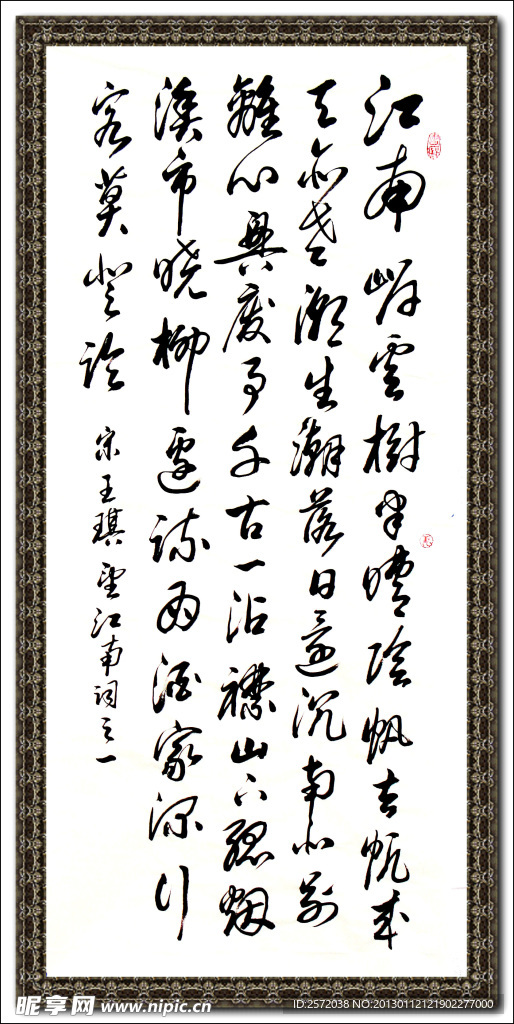 江南岸雲樹半晴陰帆去帆來
天亦老潮生潮落日還沉南北別
離心興廢事千古一沾襟山下孤烟
漁市曉柳邊疏雨酒家深行
客莫登臨
宋王琪望江南詞之一
昵享网 www.nipic.cn
ID:2572038 NO:20130112121902277000